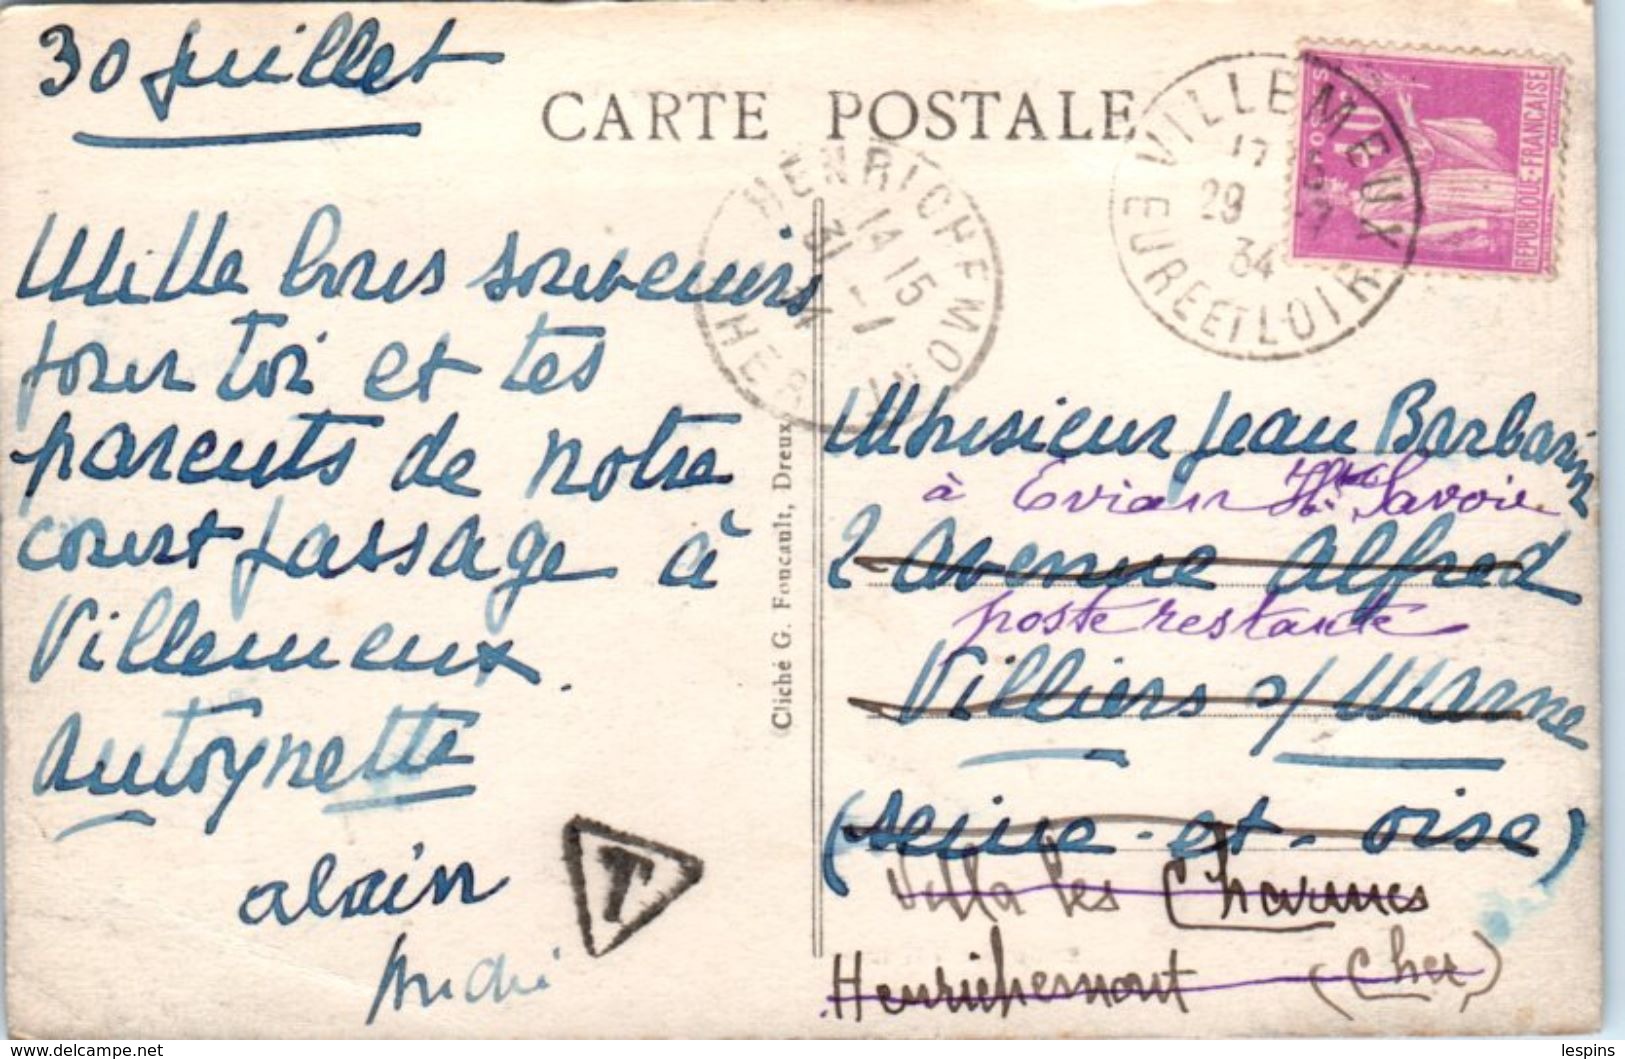 30 juillet
CARTE POSTALE
VILLEMEUX
17
29 -7
34
EURE ET LOIR
POSTES
REPUBLIQUE-FRANÇAISE
HENRICHEMONT
14 15
31
CHER
Mille bons souvenirs
pour toi et tes
parents de notre
court passage à
Villemeux.
Antoynette
alain
André
T
Cliché G. Foucault, Dreux
Monsieur Jean Barbarin
à Evian Hte Savoie
2 avenue Alfred
poste restante
Villiers s/ Marne
(Seine-et-oise)
Villa les Charmes
Henrichemont (Cher)
lespins
www.delcampe.net